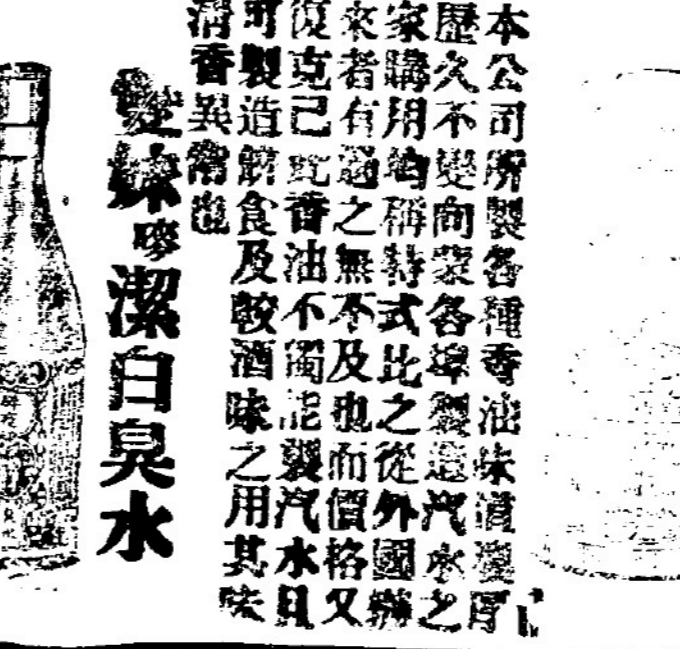 本公司所製各種香油味道濃厚
歷久不變向蒙各埠製造汽水之
家購用均稱特式比之從外國辦
來者有過之無不及也而價格又
復克己此香油不獨能製汽水且
可製造餅食及較酒味之用其味
清香異常也
潔白臭水